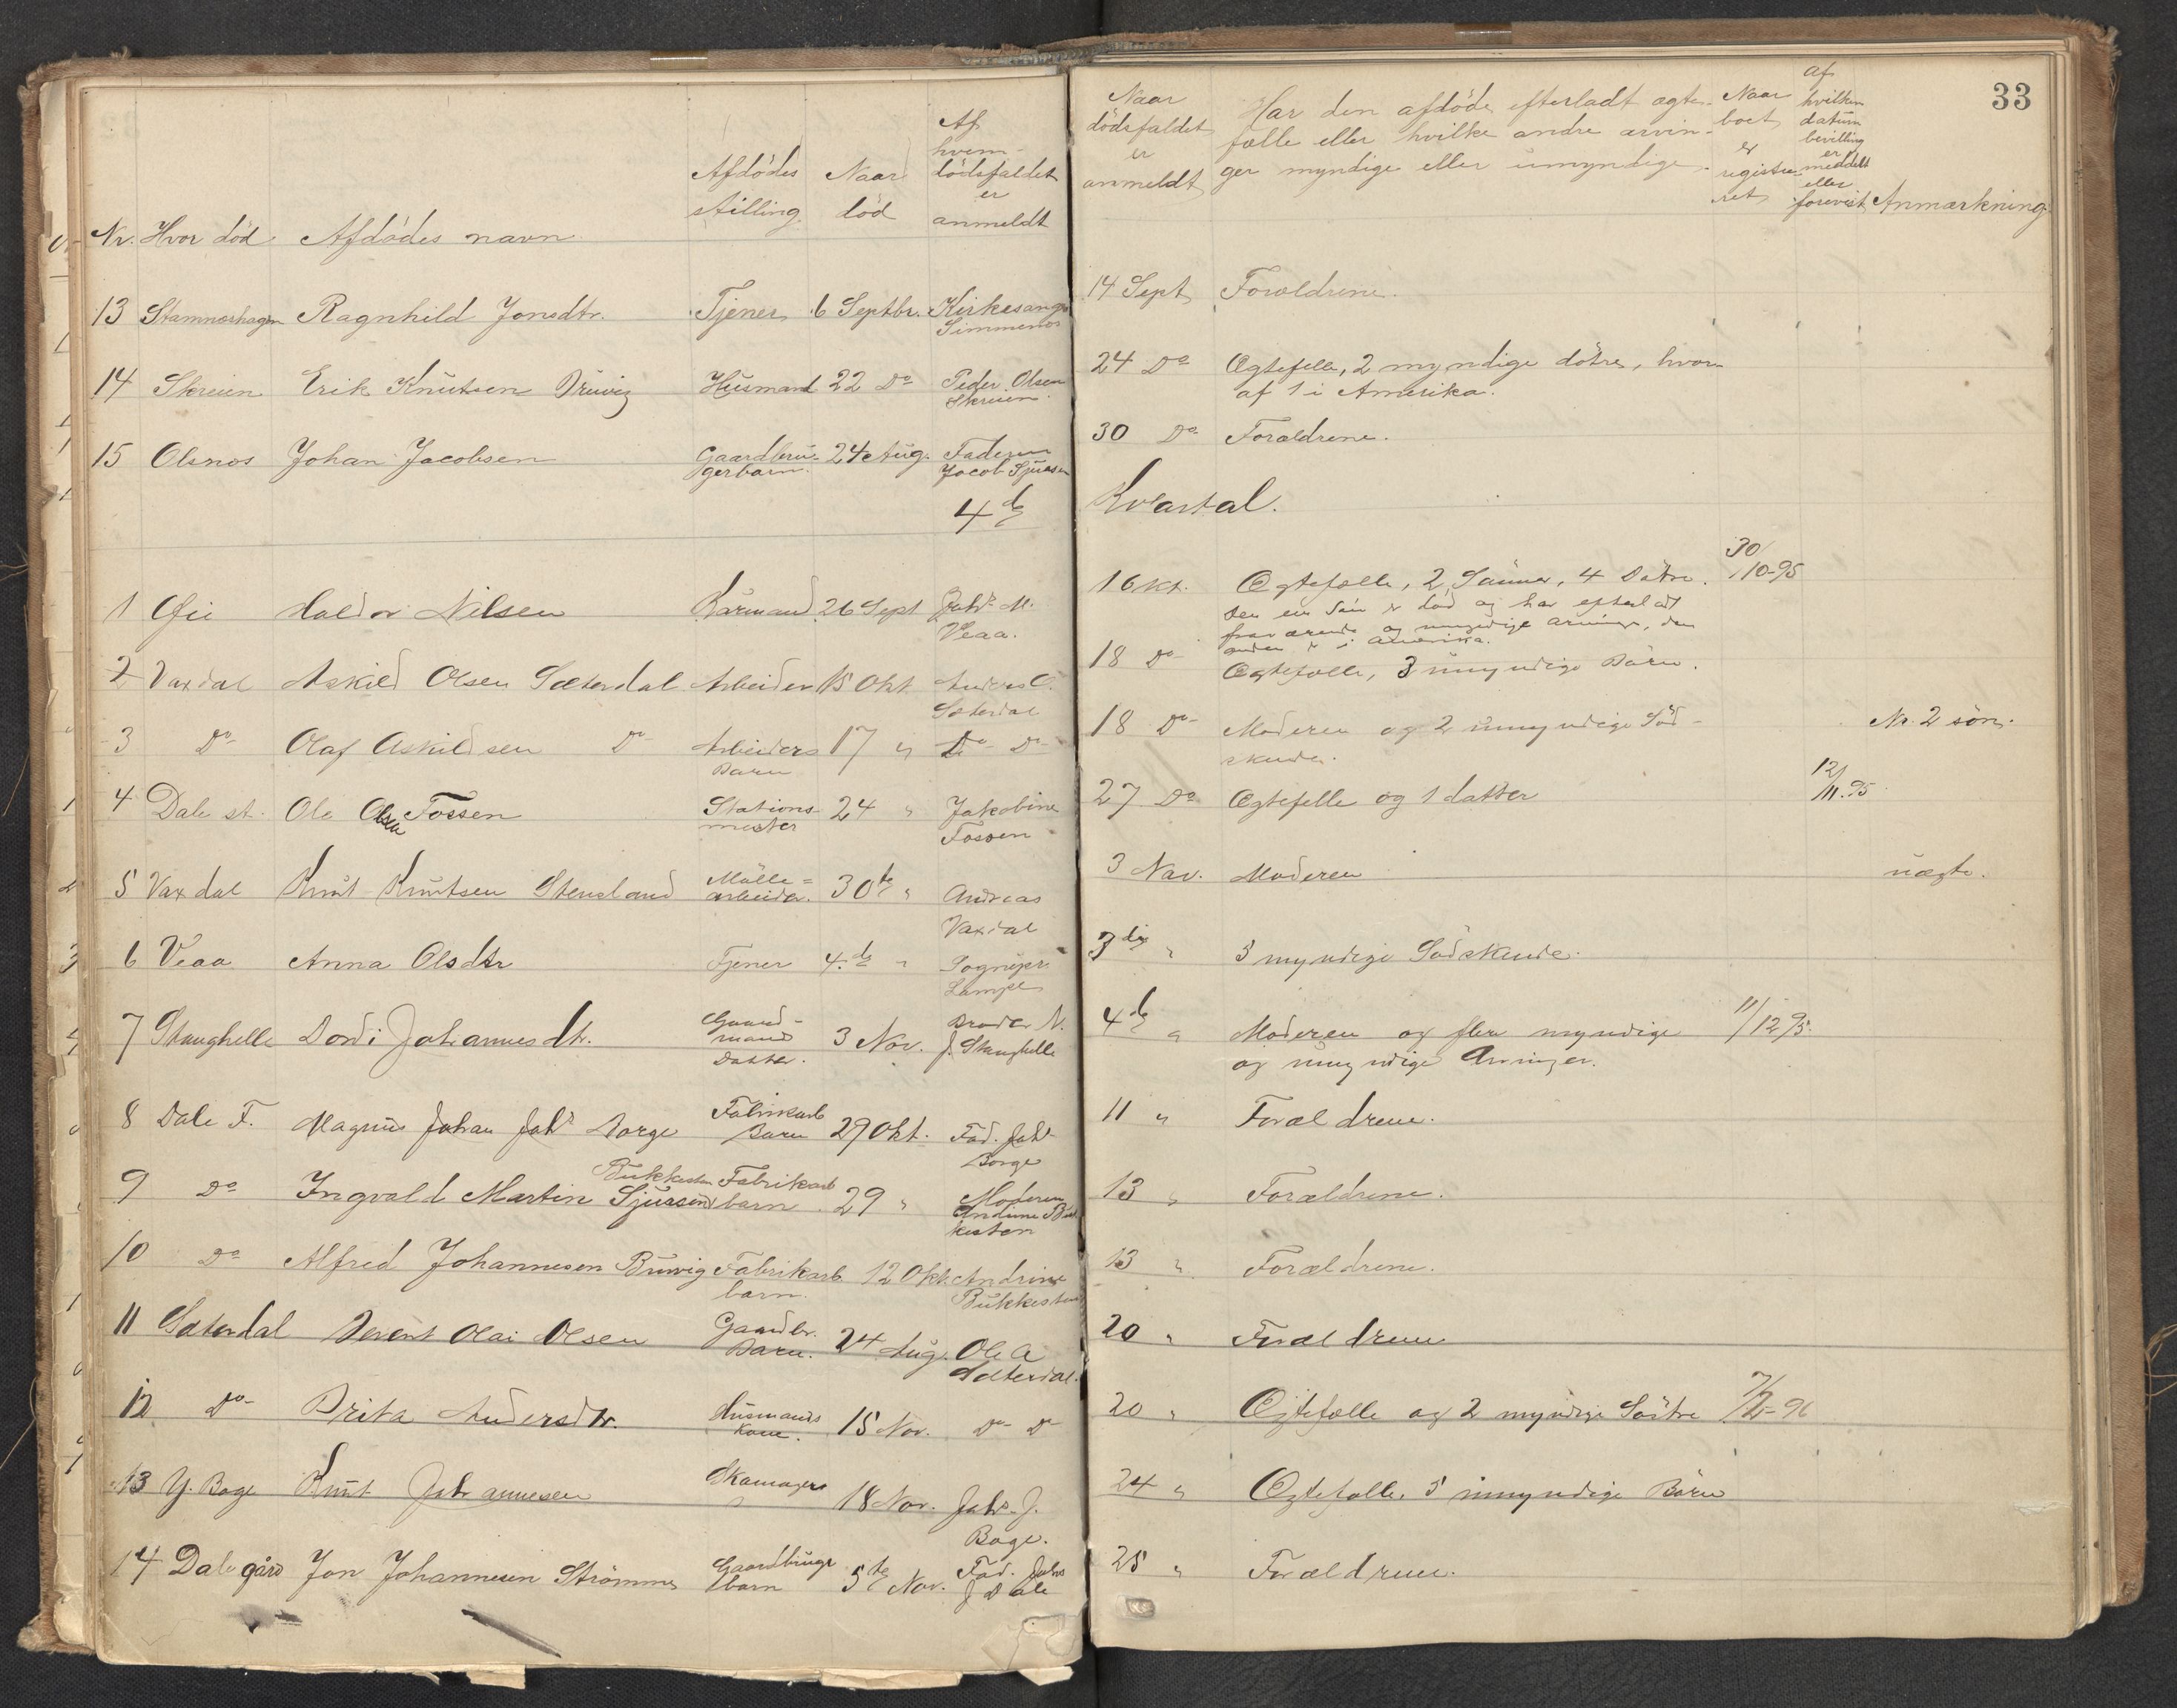 33
Nr. Hvor död Afdödes navn Afdödes stilling Naar död Af hvem dödsfaldet er anmeldt
Naar dödsfaldet er anmeldt Har den afdöde efterladt ægtefælle eller hvilke andre arvinger myndige eller umyndige. Naar boet er registreret af hvilken datum bevilling er meddelt eller forevist Anmærkning
13 Stamneshagen Ragnhild Jonsdtr. Tjener 6 Septbr. Kirkesanger Simmenes
14 Sept Forældrene.
14 Skreien Erik Knutsen Husmand 22 Do Peder Olsen Skreien
24 Do Ægtefelle, 2 myndige dötre, hvoraf 1 i Amerika.
15 Olsnes Johan Jacobsen Gaardbrugerbarn 24 Aug. Faderen Jacob Sjursen
30 Do Forældrene.
4de Kvartal.
1 Öfie Haldor Nilsen Kaarmand 26 Sept Johs M. Veaa.
1 Okt. Ægtefælle, 2 Sönner, 4 Dötre. 30/10-95
Den ene Sön er död og har efterladt
fraværende og umyndige arvinger, den
anden er i Amerika.
2 Vaxdal Askild Olsen Sæterdal Arbeider 15 Okt Anders O. Sæterdal
18 Do Ægtefælle, 3 umyndige Börn.
3 Do Olaf Askildsen Do Arbeiders Barn 17 " Do Do
18 Do Moderen og 2 umyndige Södskende. Nr. 2 sön.
4 Dale st. Ole Olsen Fossen Stationsmester 24 " Jakobine Fossen
27 Do Ægtefelle og 1 datter 12/11.95
5 Vaxdal Knut Knutsen Stensland Möllearbeider. 30te " Andreas Vaxdal
3 Nov. Moderen uægte.
6 Veaa Anna Olsdtr Tjener 4.de " Sognepr. Lampe
3die " 3 myndige Södskende.
7 Stanghelle Dordi Johannesdtr. Gaardmands Datter. 3 Nov. Broder N. J. Stanghelle
4de " Moderen og flere myndige og umyndige Arvinger. 11/12 95.
8 Dale F. Magnus Johan Johs Borge Fabrikarb Barn 29 Okt. Fad. Johs Borge
11 " Forældrene.
9 Do Ingvald Martin Sjursen Bukkesten Fabrikarb barn 29 " Moderen Andrine Bukkesten
13 " Forældrene.
10 Do Alfred Johannesen Bruvig Fabrikarb barn. 12 Okt. Andrine Bukkesten
13 " Forældrene.
11 Sæterdal Berent Olai Olsen Gaardbr. Barn. 24 Aug. Ole A Sæterdal.
20 " Forældrene
12 Do Brita Andersdtr. Husmands Kone. 15 Nov. Do Do
20 " Ægtefælle og 2 myndige 96
13 Y. Boge Knut Johannesen Skomager 18 Nov. Johs. J. Boge.
24 " Ægtefælle, 5 umyndige Börn
14 Dale gård Jon Johannesen Strömmes Gaardbruger barn 5te Nov. Fad. Johs J Dale
25 " Forældrene.